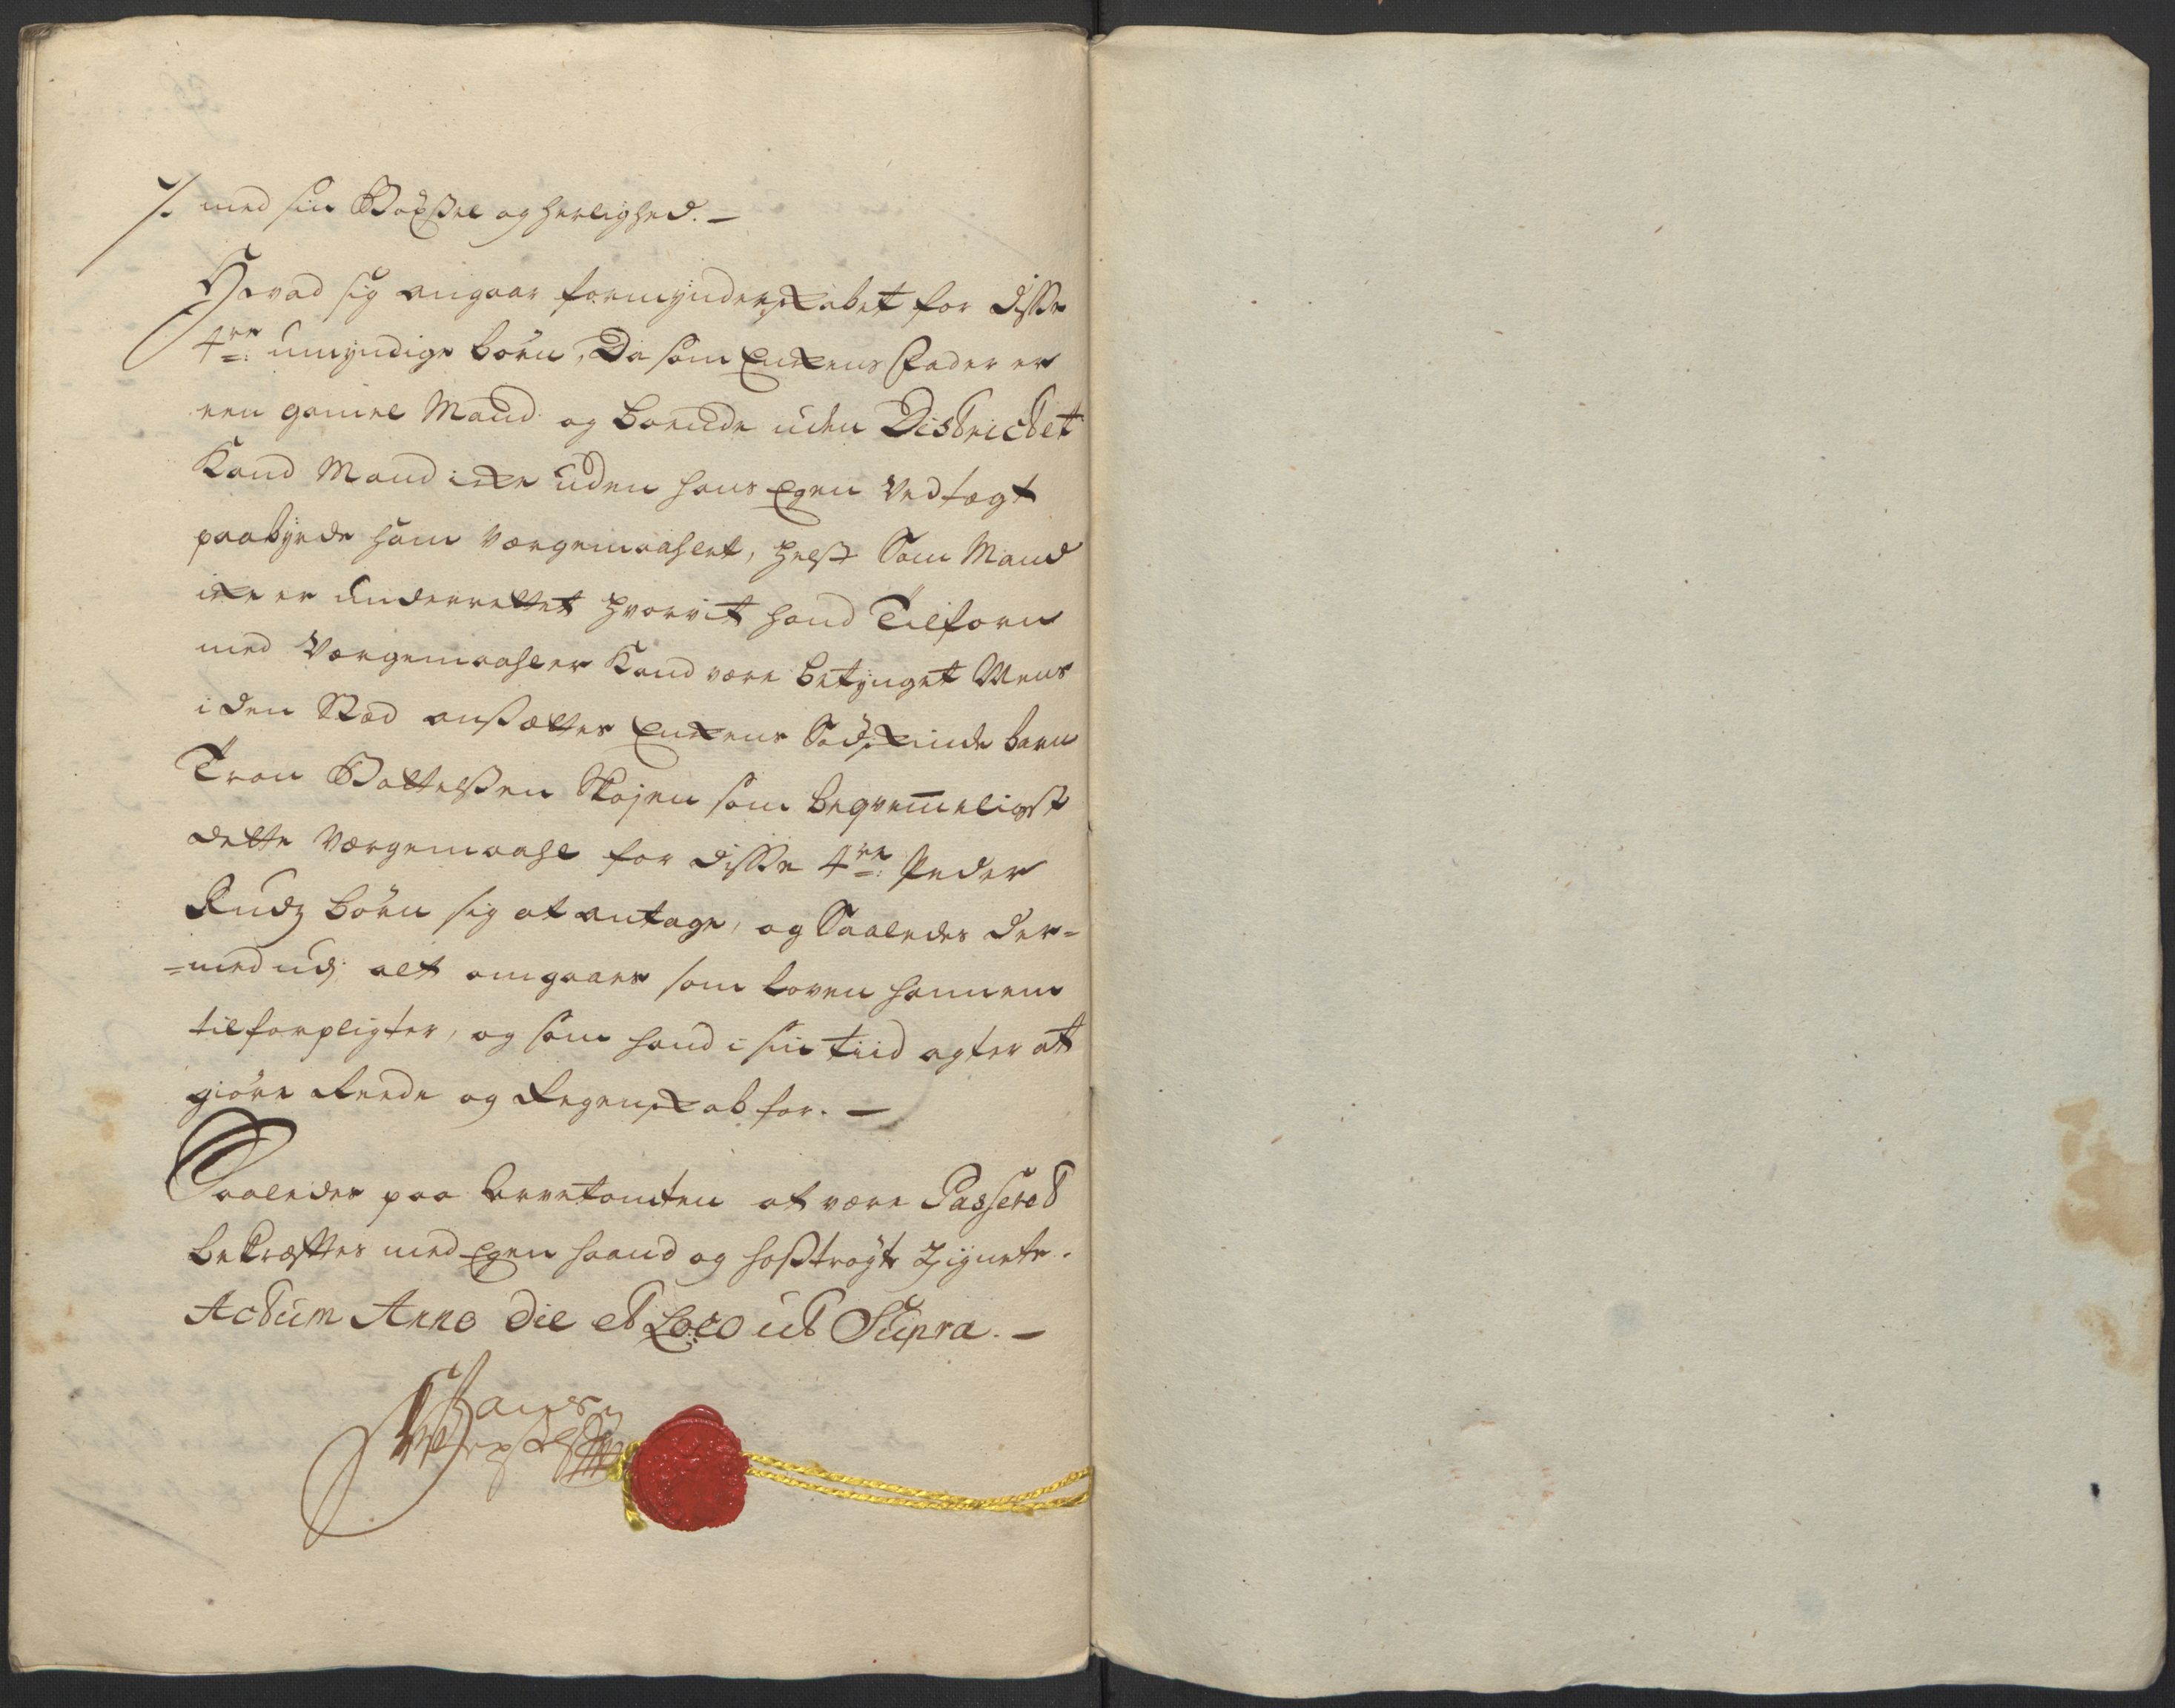 /. med sin Böxsel og herlighed. –
Hvad sig angaar formynderskabet for disse
4re umyndige börn, Da som Enkens Fader er
een gamel Mand og boende uden Districtet
Kand Mand icke uden hans Egen Vedtægt
paabyrde ham værgemaahlet, helst Som Mand
icke er underrettet hvorvit hand Tilforn
med Værgemaahler Kand være betynget Mens
i den Stæd ansættes Enkens Södskinde barn
Tron Bottelsen Skojen som beqvemmeligst
dette Værgemaahl for disse 4re Peder
Rudz börn sig at antage, og Saaledes der=
=med udj alt omgaaes som loven hannem
tilforpligter, og som hand i sin tiid agter at
giöre Reede og Regenskab for. –
Saaledes paa Arvetomten at være Passeret
bekræfftes med Egen haand og hoströgte Zignete.
Actum Anno Die et Loco ut Supra. –